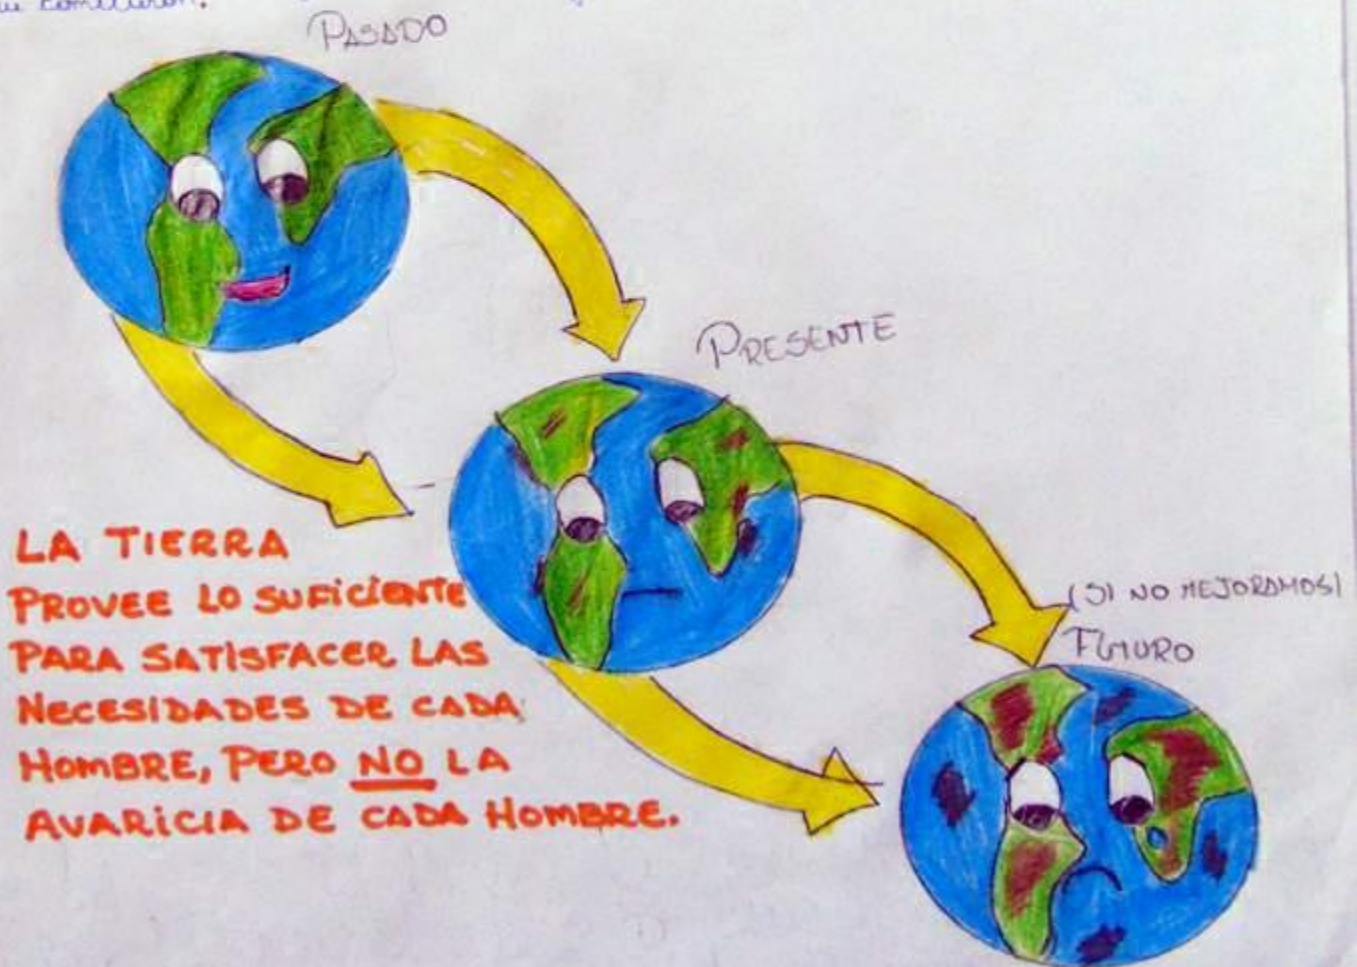 PASADO
PRESENTE
(SI NO MEJORAMOS)
FUTURO
LA TIERRA
PROVEE LO SUFICIENTE
PARA SATISFACER LAS
NECESIDADES DE CADA
HOMBRE, PERO NO LA
AVARICIA DE CADA HOMBRE.